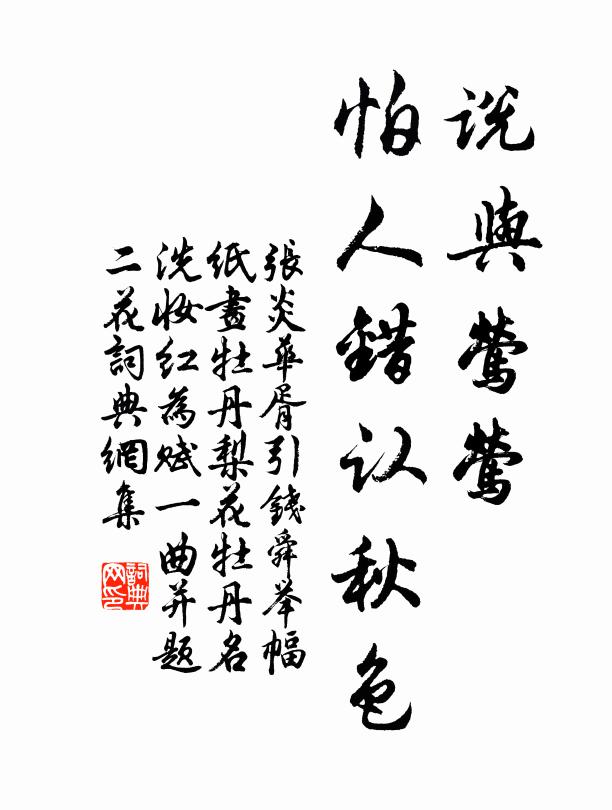 说與莺莺
怕人錯认秋色
張炎華胥引錢舜举幅
紙畫牡丹梨花牡丹名
洗妆红為赋一曲并题
二花詞典網集
詞典网印